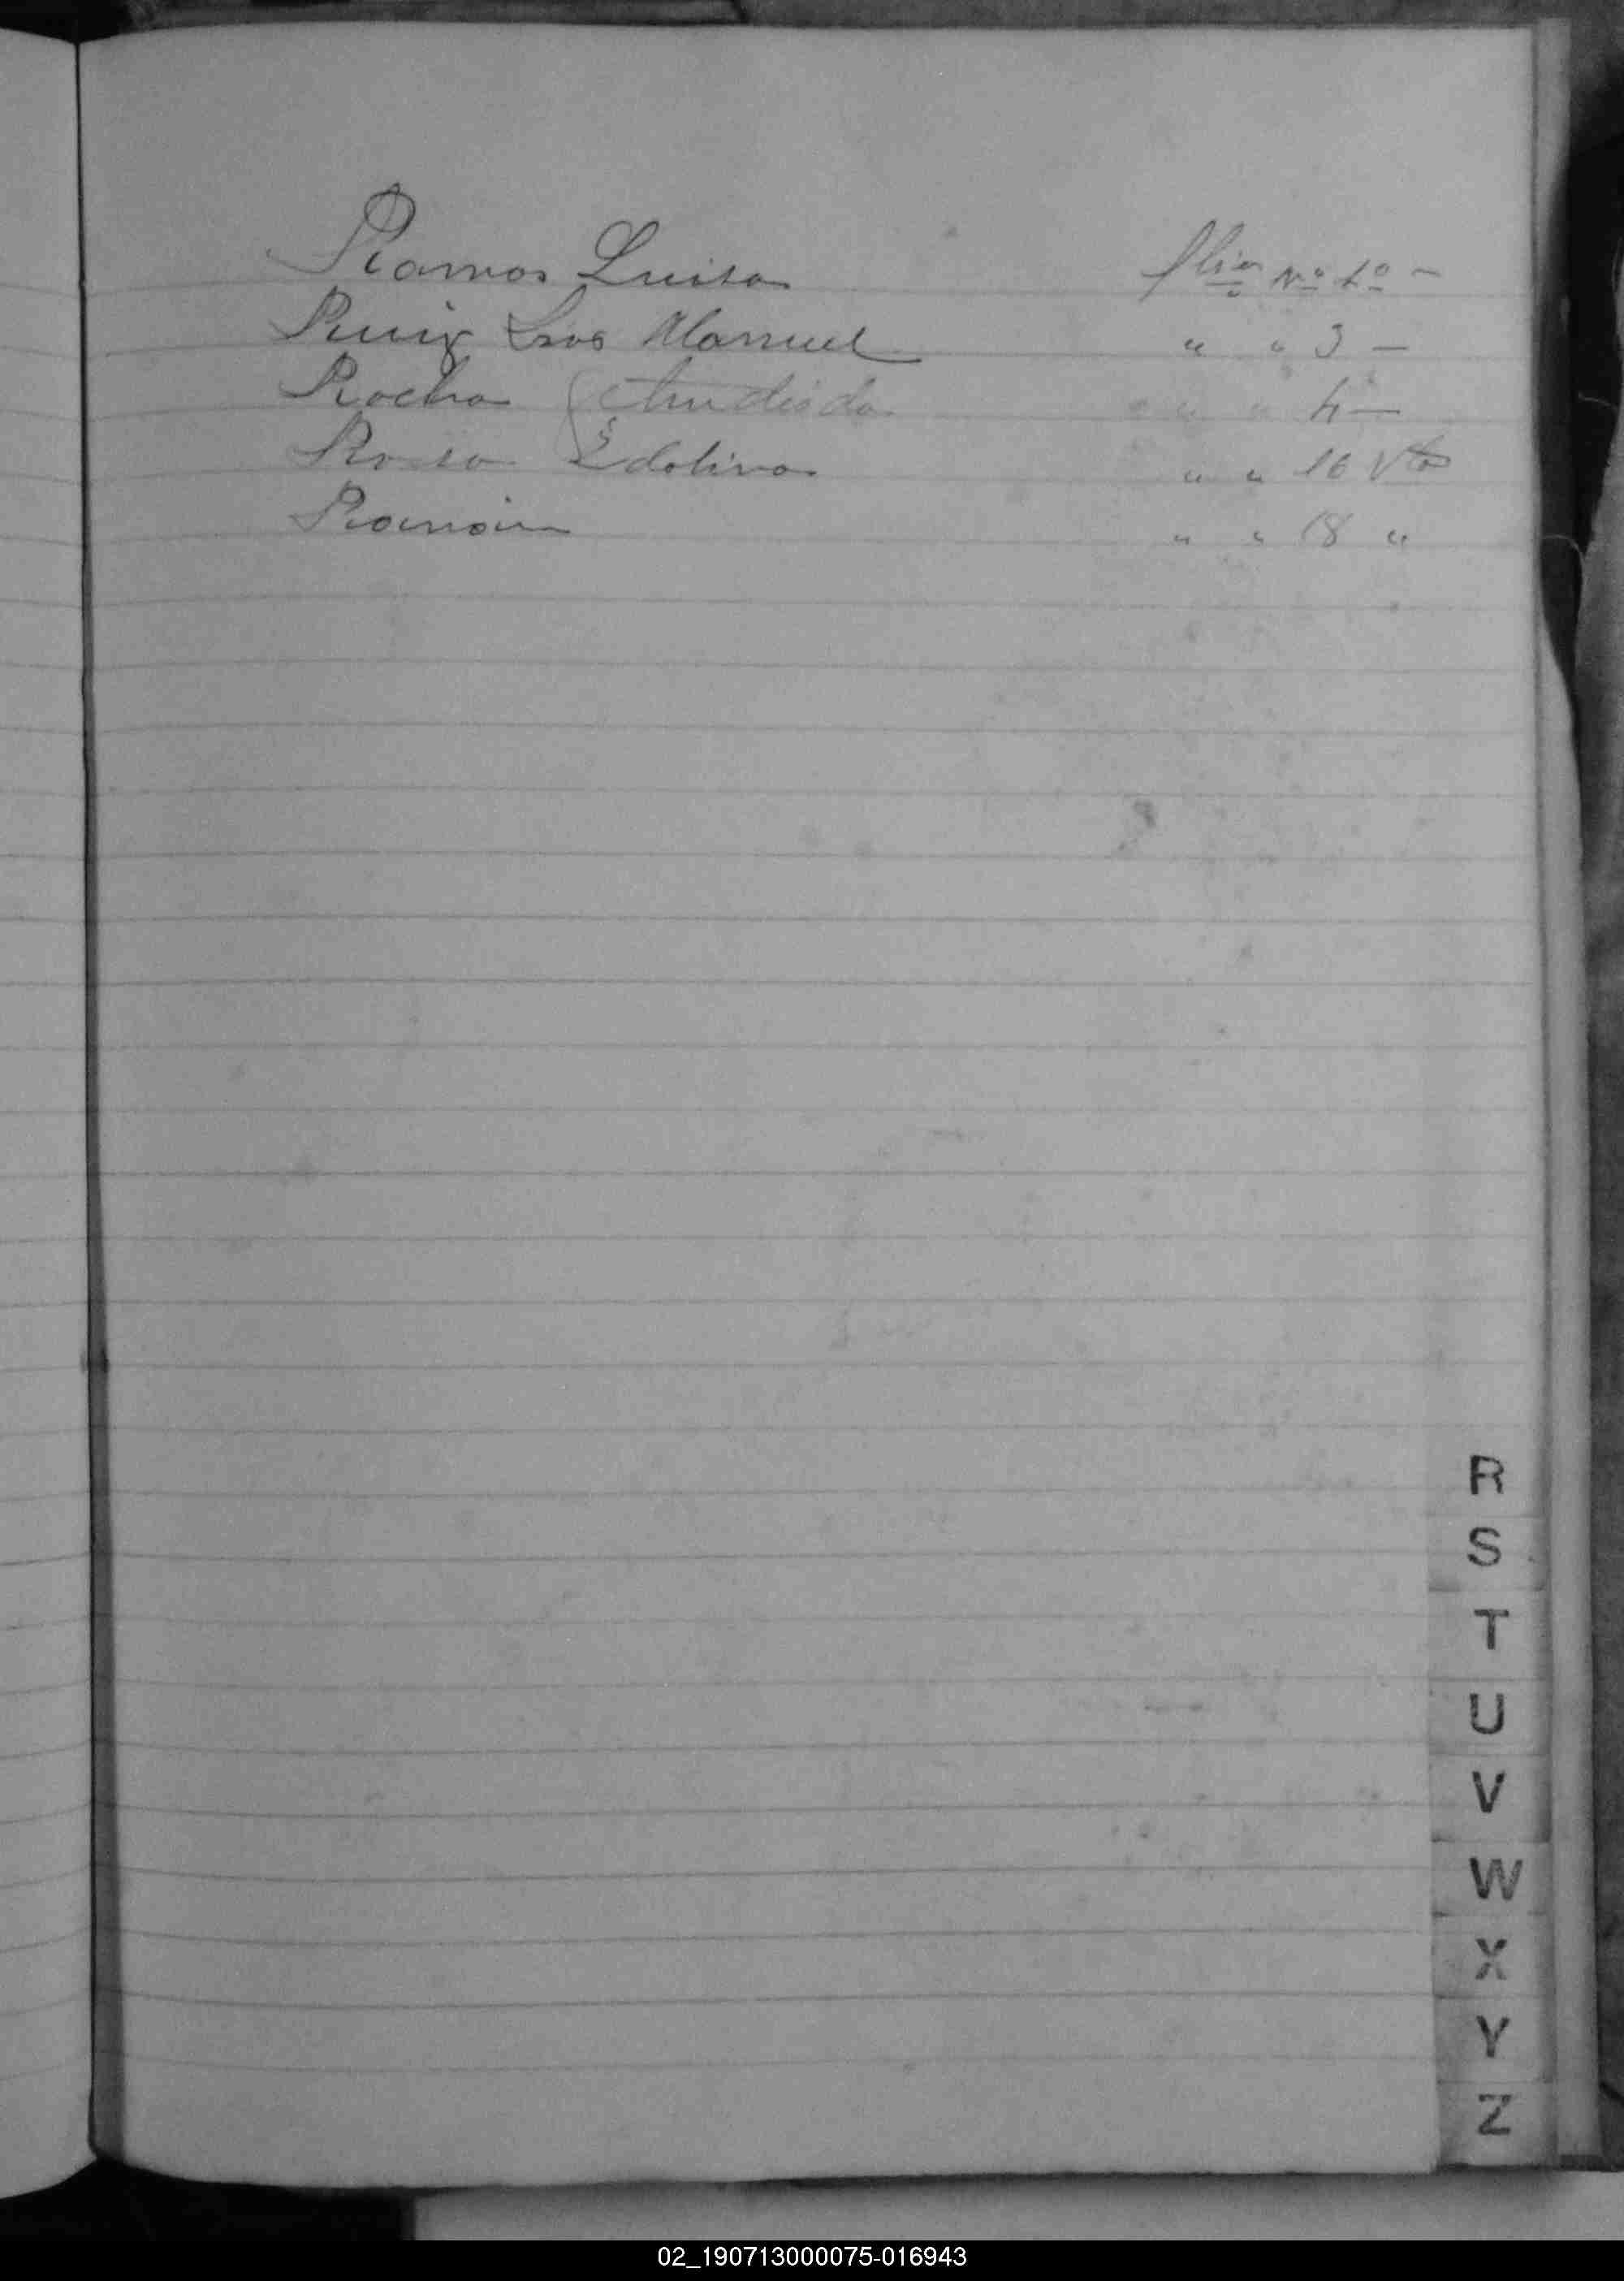 Ramos Luisa flio Nº 1º -
Ruiz Luis Manuel " " 3 -
Rocha " " 4 -
Rosa Edolina " " 16 Vto
Ramoin " " 18 "
R
S
T
U
V
W
X
Y
Z
02_190713000075-016943